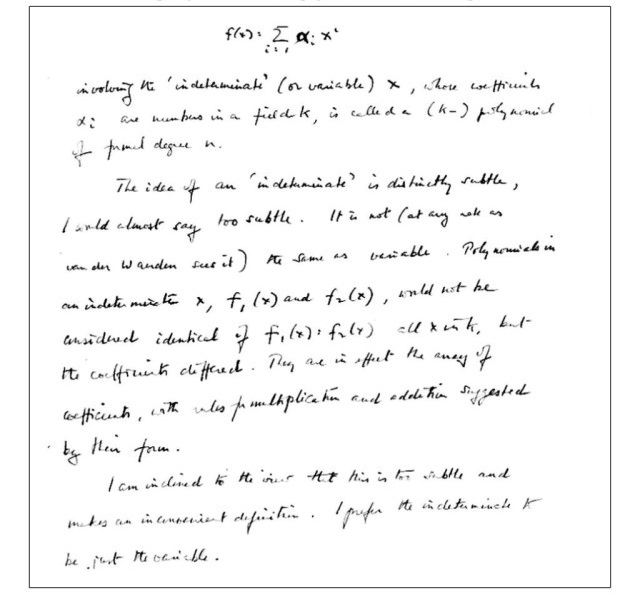 f(x) = Σ αᵢ xⁱ
i=1
involving the 'indeterminate' (or variable) x, whose coefficients
αᵢ are numbers in a field k, is called a (k-) polynomial
of formal degree n.
The idea of an 'indeterminate' is distinctly subtle,
I would almost say too subtle. It is not (at any rate as
van der Waerden sees it) the same as variable. Polynomials in
an indeterminate x, f₁(x) and f₂(x), would not be
considered identical if f₁(x) = f₂(x) all x in k, but
the coefficients differed. They are in effect the array of
coefficients, with rules for multiplication and addition suggested
by their form.
I am inclined to the view that this is too subtle and
makes an inconvenient definition. I prefer the indeterminate k
be just the variable.